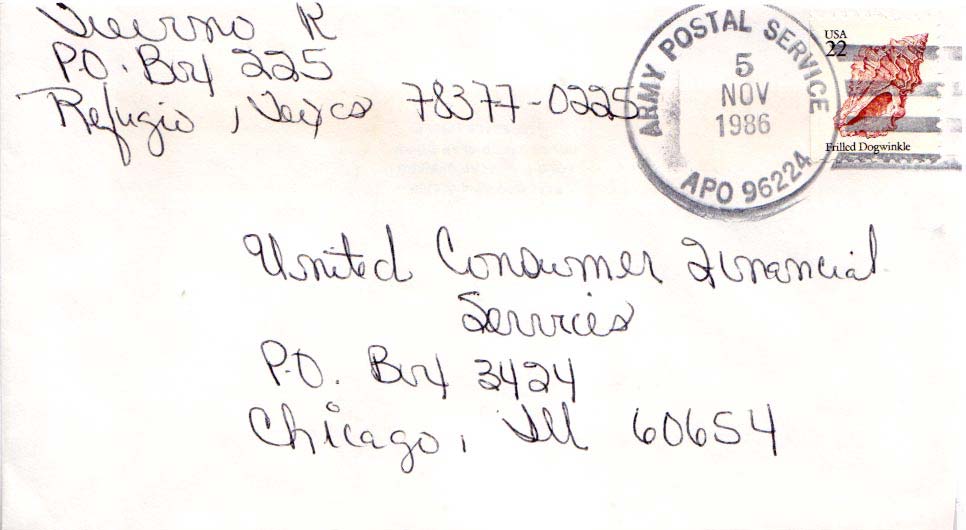 R
P.O. Box 225
Refugio, Texas 78377-0225
ARMY POSTAL SERVICE
5
NOV
1986
APO 96224
USA
22
Frilled Dogwinkle
United Consumer Financial
Services
P.O. Box 3424
Chicago, Ill 60654